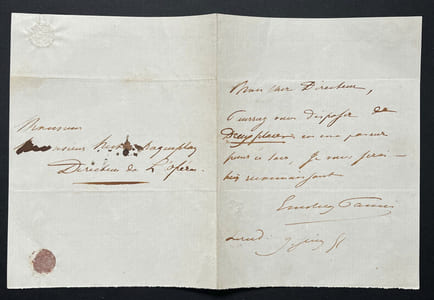 Monsieur
Monsieur Roqueplan
Directeur de L'Opéra.
Mon cher Directeur,
Pouvez vous disposer de
Deux places en ma faveur
pour ce soir, Je vous serai
bien reconnaissant
Lundi